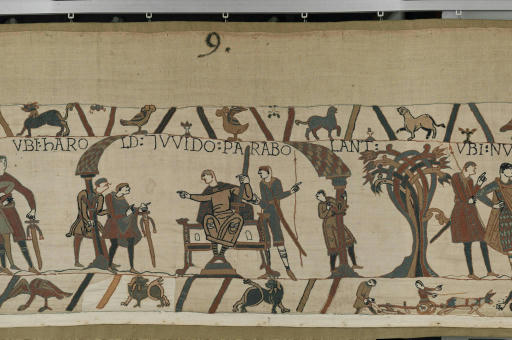 9.
VBI: HARO LD: ⁊ VVIDO: PARABO LANT: VBI: NV